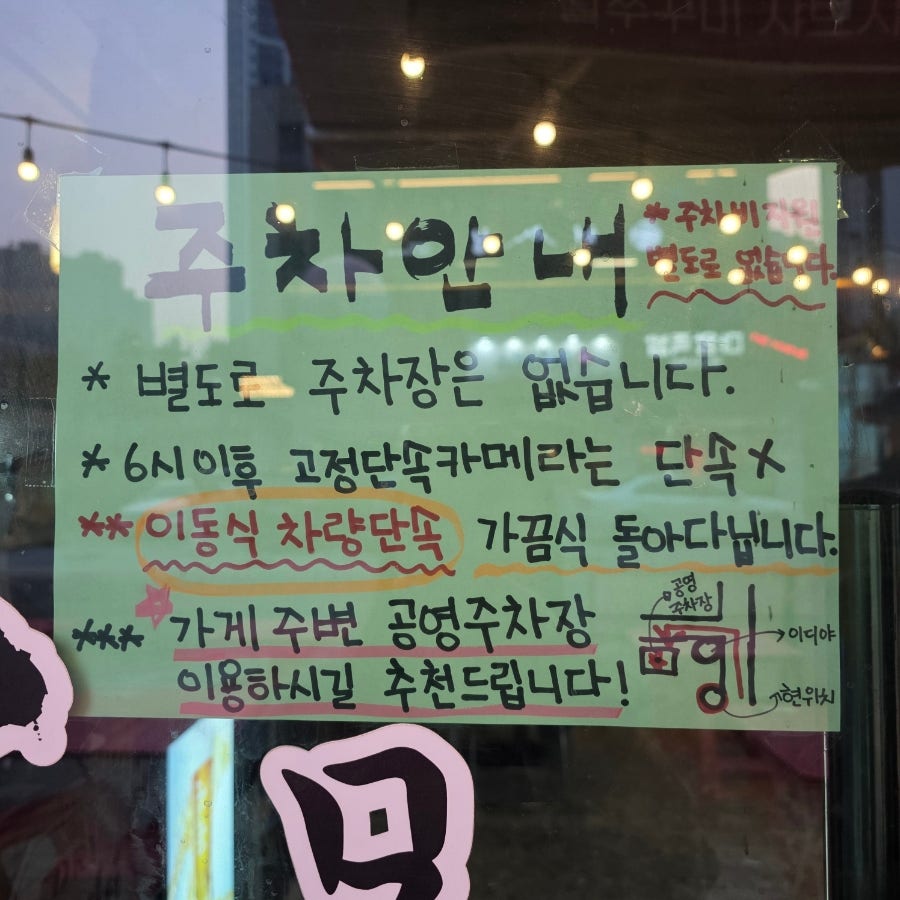 주차안내
* 주차비 지원
별도로 없습니다.
* 별도로 주차장은 없습니다.
* 6시이후 고정단속카메라는 단속X
** 이동식 차량단속 가끔식 돌아다닙니다.
*** 가게주변 공영주차장
이용하시길 추천드립니다!
공영
주차장
이디야
현위치